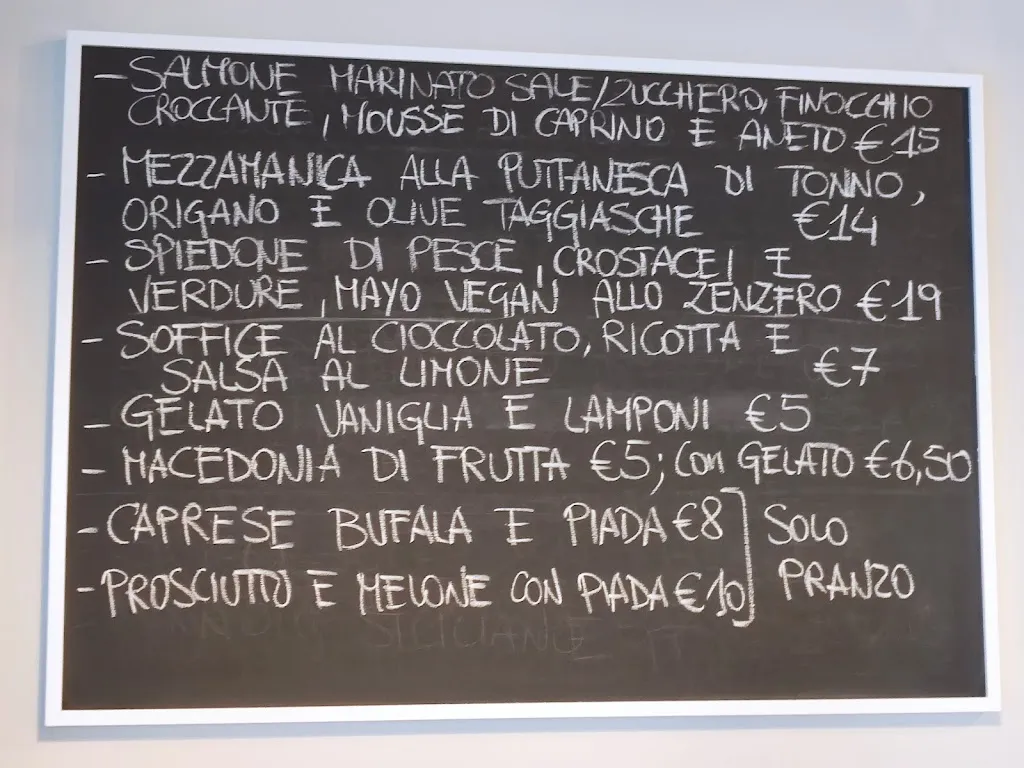 - SALMONE MARINATO SALE/ZUCCHERO, FINOCCHIO
CROCCANTE, MOUSSE DI CAPRINO E ANETO €15
- MEZZAMANICA ALLA PUTTANESCA DI TONNO,
ORIGANO E OLIVE TAGGIASCHE €14
- SPIEDONE DI PESCE, CROSTACEI E
VERDURE, MAYO VEGAN ALLO ZENZERO €19
- SOFFICE AL CIOCCOLATO, RICOTTA E
SALSA AL LIMONE €7
- GELATO VANIGLIA E LAMPONI €5
- MACEDONIA DI FRUTTA €5; con GELATO €6,50
- CAPRESE BUFALA E PIADA €8] SOLO
- PROSCIUTTO E MELONE CON PIADA €10] PRANZO
SICILIANE